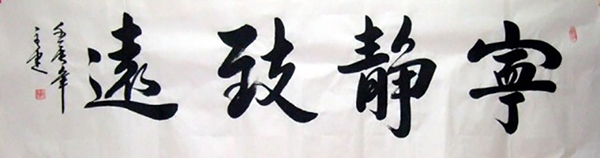 寧静致遠
壬辰年